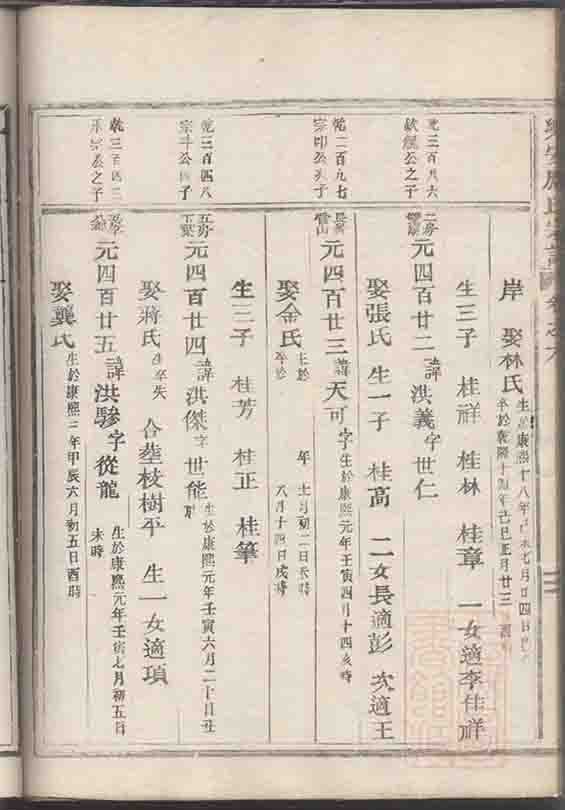 岸 娶林氏 生於康熙十八年己未七月廿四日
卒於乾隆十四年己巳正月廿三
生三子 桂祥 桂林 桂章 一女適李仕祥
元二百八六
欽經公之子
二房
元四百廿二 諱洪義 字世仁
娶張氏 生一子 桂高 二女長適彭 次適王
乾二百九七
宗印公之子
元四百廿三 諱天可 字 生於康熙元年壬寅四月十四亥時
娶金氏 生於 年 七月初二日未時
卒於 八月十四日戌時
生三子 桂芳 桂正 桂筆
乾三百四八
宗斗公四子
五房
元四百廿四 諱洪傑 字世能 生於康熙元年壬寅六月二十日丑
時
娶蔣氏 生卒失 合塋枝樹平 生一女適項
乾三百四二
公之子
元四百廿五 諱洪驂 字從龍 生於康熙元年壬寅七月初五日
未時
娶龔氏 生於康熙三年甲辰六月初五日酉時